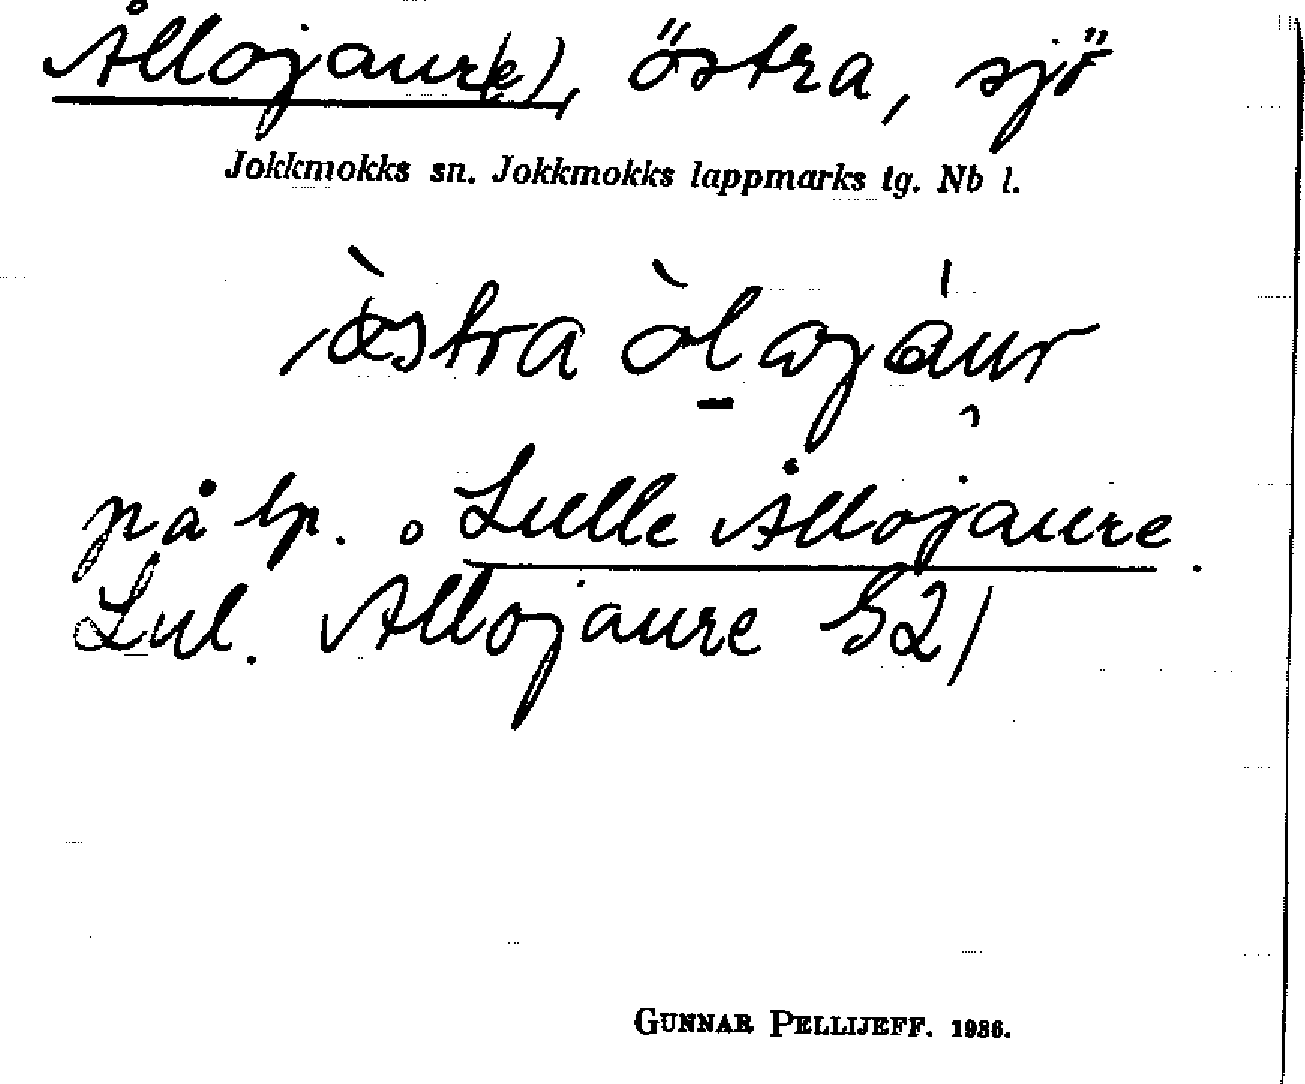 Ållojaur(e), östra, sjö
Jokkmokks sn. Jokkmokks lappmarks tg. Nb l.
òstra òlojáur
på lp. o Lulle Ållojaure.
Lul. Allojaure S2/
GUNNAR PELLIJEFF. 1936.